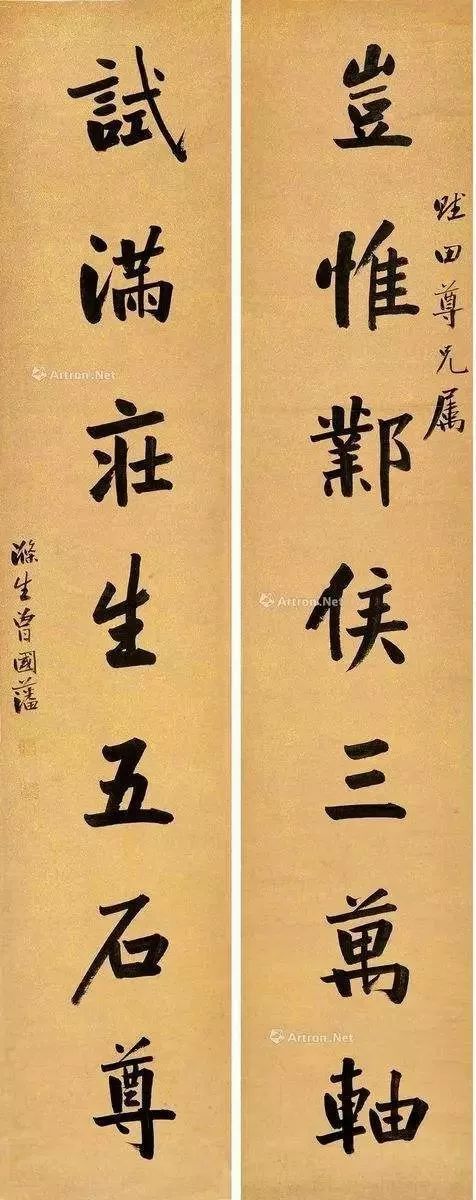 田尊兄属
豈惟鄴侯三萬軸
試滿莊生五石尊
滌生曾國藩
Artron.Net
Artron.Net
Artron.Net